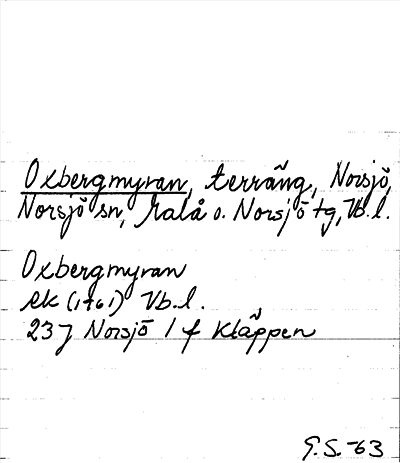 Oxbergmyran, terräng, Norsjö,
Norsjö sn, Malå o. Norsjö tg, Vb.l.
Oxbergmyran
ek (1961) Vb.l.
23 J Norsjö 1 f Kläppen
G.S. -63